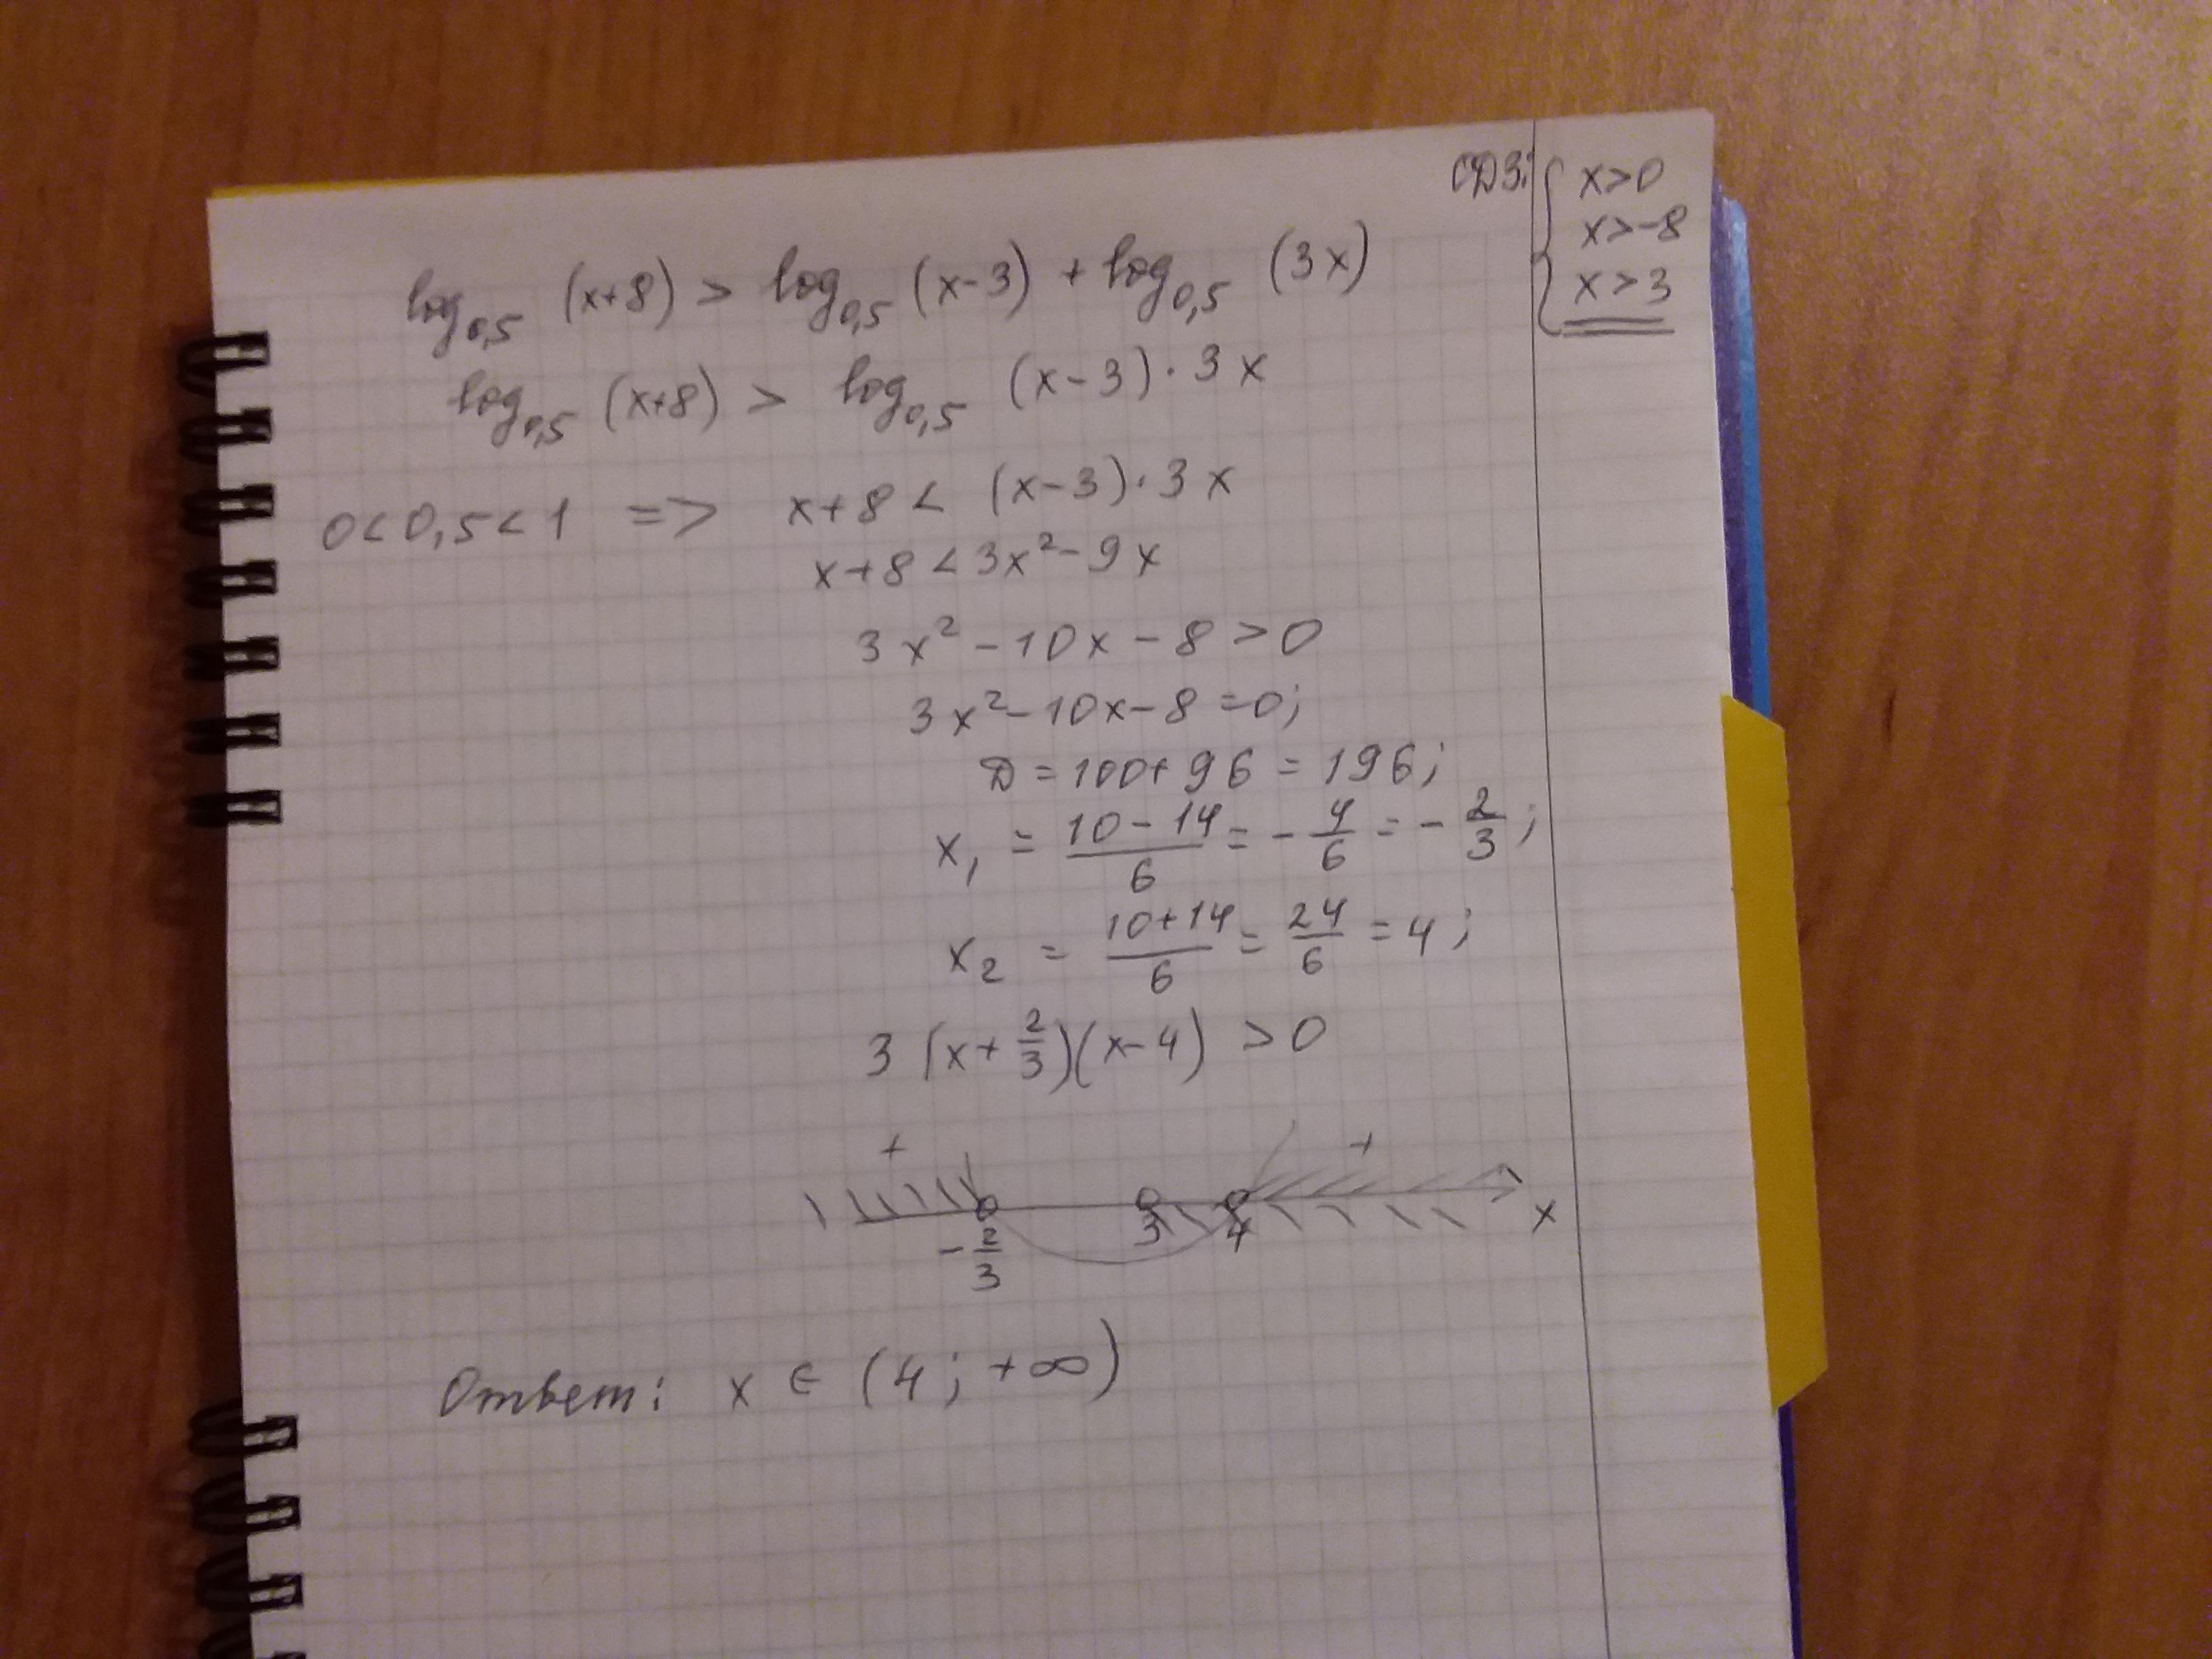 ОДЗ: { x>0
x>-8
x>3
log₀,₅ (x+8) > log₀,₅ (x-3) + log₀,₅ (3x)
log₀,₅ (x+8) > log₀,₅ (x-3)·3x
0<0,5<1 => x+8 < (x-3)·3x
x+8<3x²-9x
3x²-10x-8>0
3x²-10x-8=0;
D=100+96=196;
x₁ = (10-14)/6 = -4/6 = -2/3;
x₂ = (10+14)/6 = 24/6 = 4;
3(x+2/3)(x-4) >0
+ +
-2/3 3 4 x
Ответ: x ∈ (4; +∞)